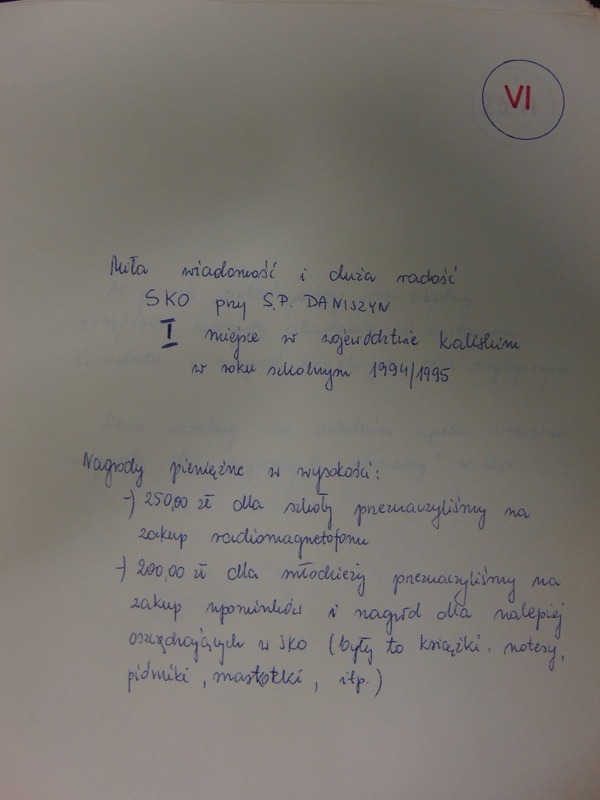 VI
Miła wiadomość i duża radość
SKO przy S.P. DANISZYN
I miejsce w województwie kaliskim
w roku szkolnym 1994/1995
Nagrody pieniężne w wysokości:
-) 250,00 zł dla szkoły przeznaczyliśmy na
zakup radiomagnetofonu
-) 200,00 zł dla młodzieży przeznaczyliśmy na
zakup upominków i nagród dla nalepiej
oszczędzających w SKO (były to książki, notesy,
piórniki, maskotki, itp.)